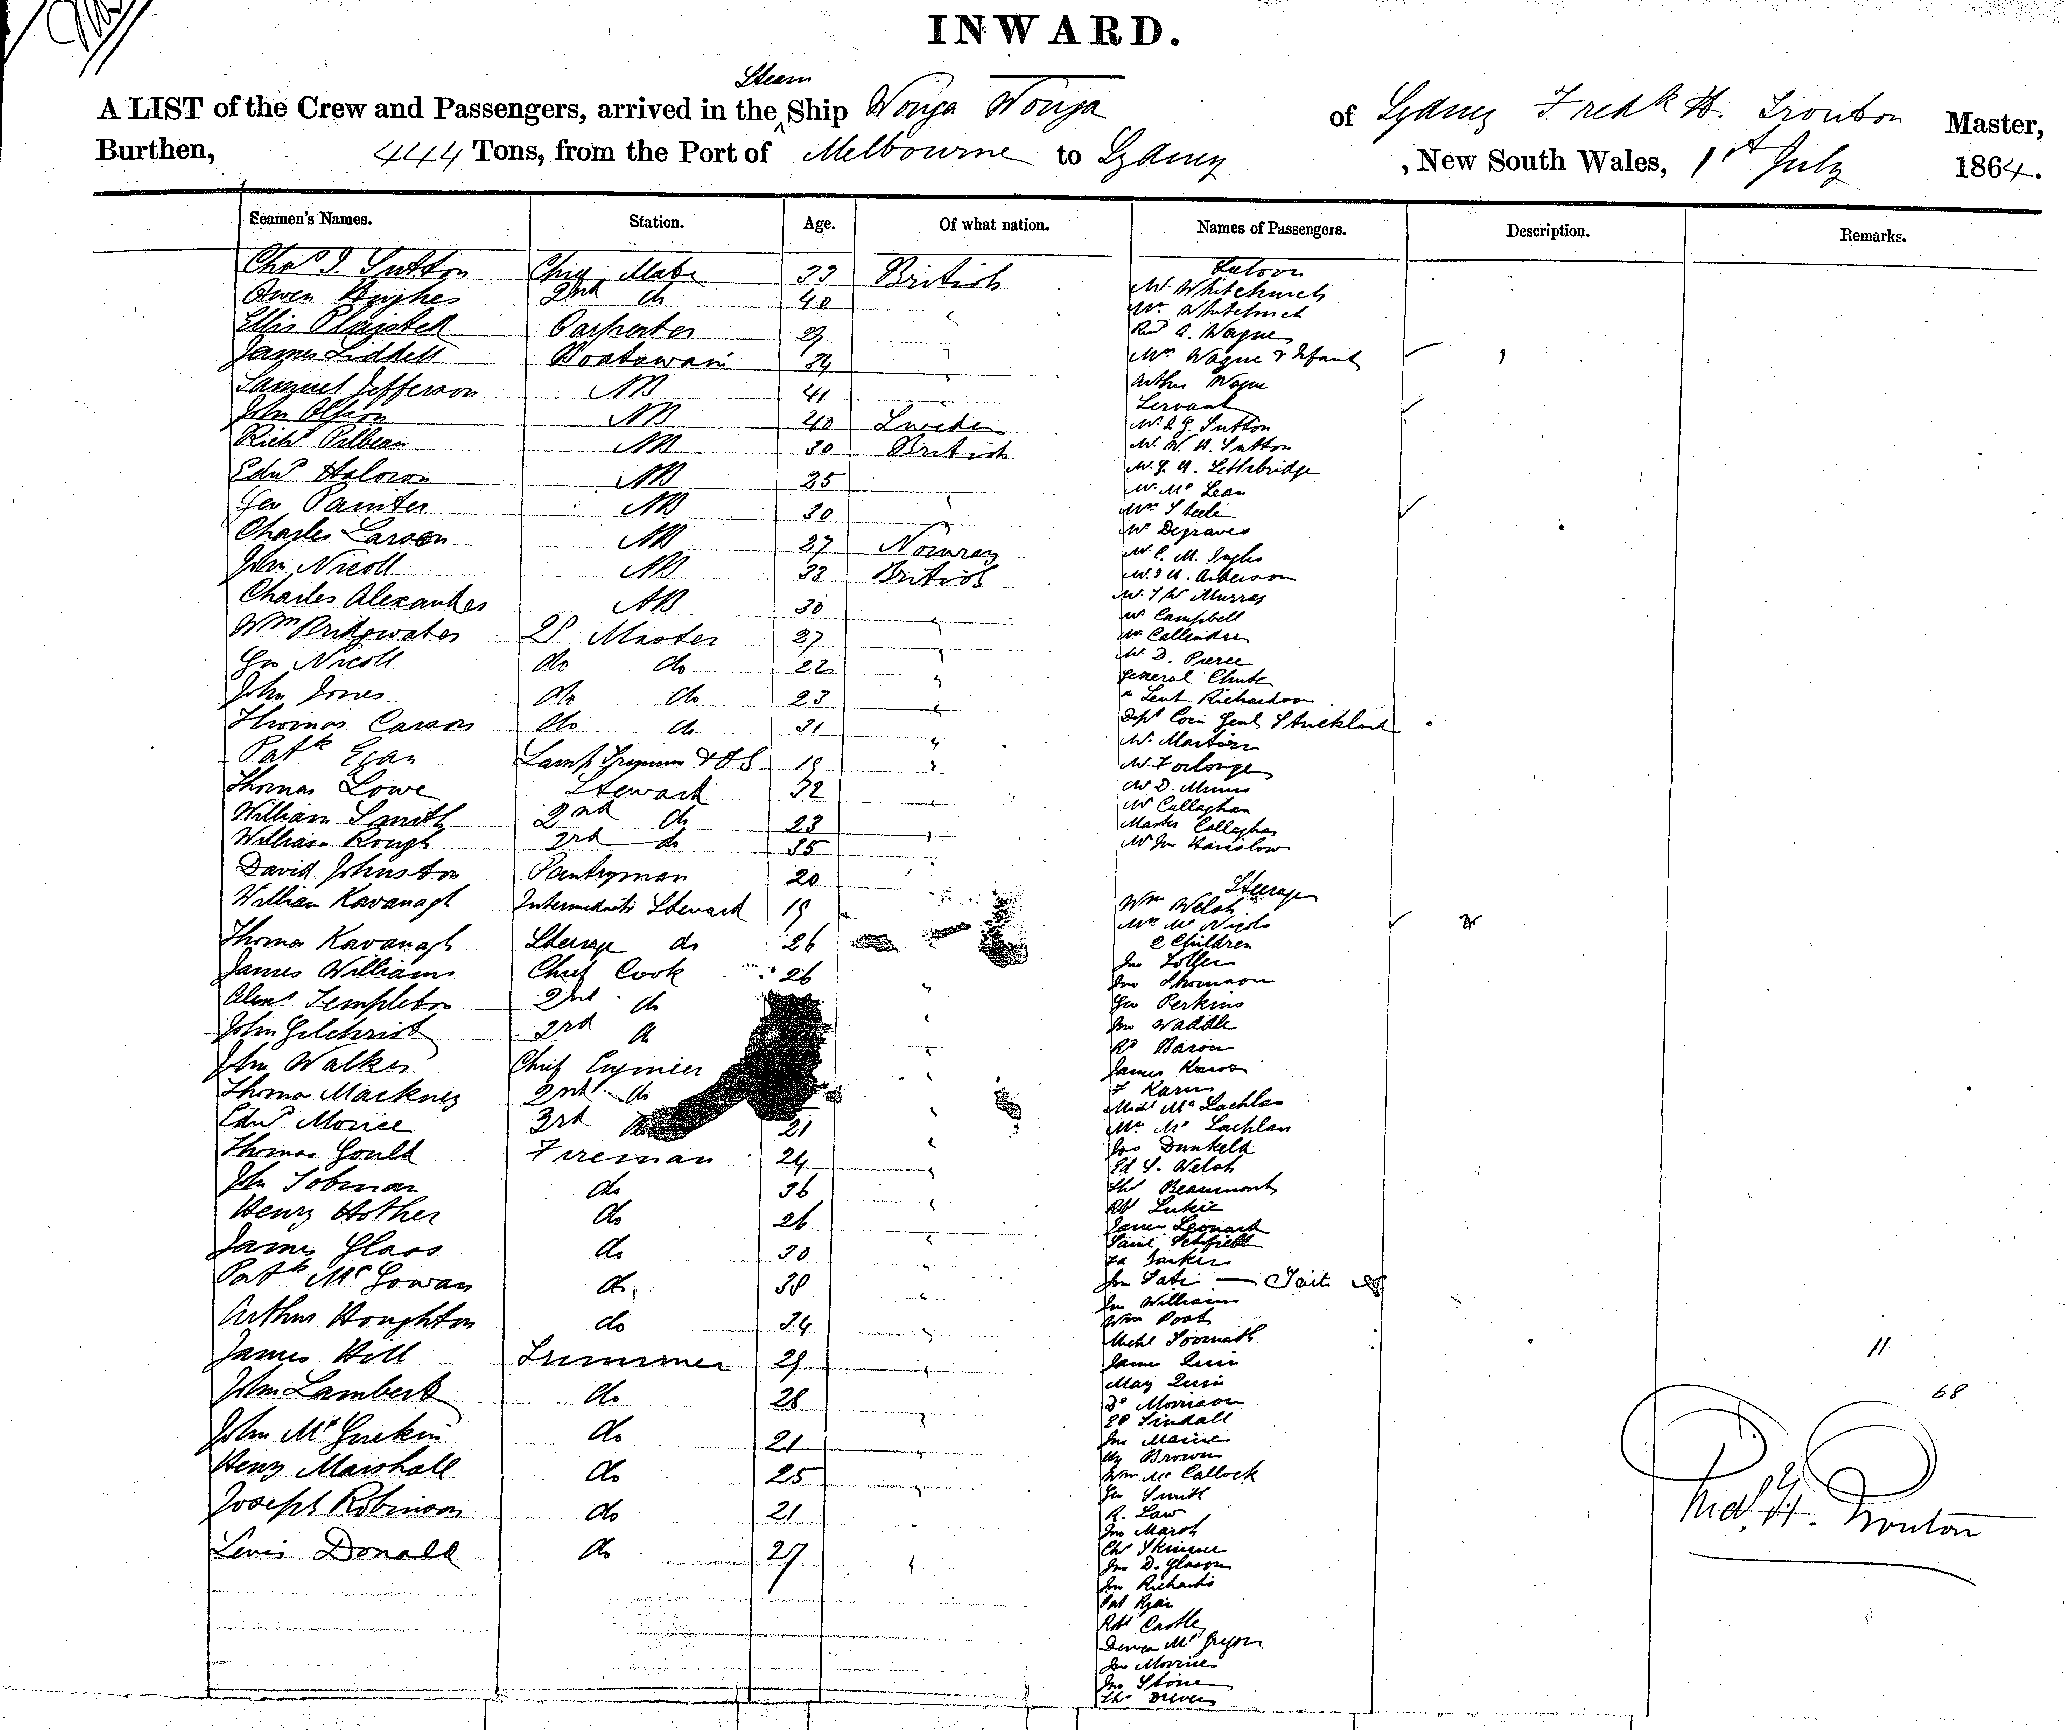 INWARD.
Steam
A LIST of the Crew and Passengers, arrived in the Ship Wonga Wonga of Sydney Fredk H. Trouton Master,
Burthen, 444 Tons, from the Port of Melbourne to Sydney , New South Wales, 1st July 1864.
Seamen's Names. Station. Age. Of what nation. Names of Passengers. Description. Remarks.
Saloon
Chas J. Sutton Chief Mate 33 British Mr Whitchurch
Owen Hughes 2nd do 40 " Mrs Whitchurch
Ellis Carpenter 29 " Revd A. Wayne
James Liddell Boatswain 34 " Mrs Wayne & Infant
Samuel Jefferson AB 41 Arthur Wayne
John Olsson AB 40 Sweden Servant
Mr Sutton
Richd Pilbeam AB 30 British Mr W. H. Sutton
Edwd AB 25 " Mr J. A. Lethbridge
Mr McLean
Geo Painter AB 30 " Mrs Steele
Mr Degraves
Charles Larsen AB 27 Norway Mr C. M.
John Nicoll AB 33 British Mr Anderson
Charles Alexander AB 30 " Mr Murray
Mr Campbell
Wm Bridgwater Qr Master 27 " Mr Callender
Geo Nicoll do do 22 " Mr D. Pierce
General Chute
John Jones do do 23 " " Lieut Richardson
Thomas Carson do do 31 " Depy Com Genl Strickland
Mr Martin
Patk Egan Lamp Trimmer & OS 19 " Mr Forlonge
Thomas Lowe Steward 32 Mr D.
Mr Callaghan
William Smith 2nd do 23 " Master Callaghan
William Rough 3rd do 35 " Mr Jno
David Johnston Pantryman 20 "
Steerage
William Kavanagh Intermediate Steward 19 Wm Welsh
Mrs
Thomas Kavanagh Steerage do 26 2 Children
James Williams Chief Cook 26 " Jno
Jno Thomson
Alexr Templeton 2nd do " Geo Perkins
John Gilchrist 3rd do " Jno Waddle
Rd Baron
John Walker Chief Engineer " James
Thomas Mackney 2nd do " F
Michl McLachlan
Edwd Morice 3rd 21 " Mrs McLachlan
Thomas Gould Fireman 24 " Jas Dunkeld
Ed S. Welsh
John Tobman do 36 " Thos Beaumont
Henry Hother do 26 " Robt Luckie
James Leonard
James Glass do 30 " Saml
Parker
Patk McGowan do 38 " Jno Tate — Tait
Jno Williams
Arthur Houghton do 34 " Wm Poat
Michl
James Hill Trimmer 29 " James Quin
May Quin
John Lambert do 28 " Morrison
Tindall
John McGuckin do 21 " Jno Maine
Hy Brown
Henry Marshall do 25 " Wm McCallock
Geo Smith
Joseph Robinson do 21 " R. Law
Jno Marsh
Lewis Donald do 27 " Chs Skinner
Jno D. Gleson
Jno Richards
Pat Ryan
Robt Castle
McGregor
Jno Morrice
Jno Stone
Thos
11
68
Fredk H. Trouton